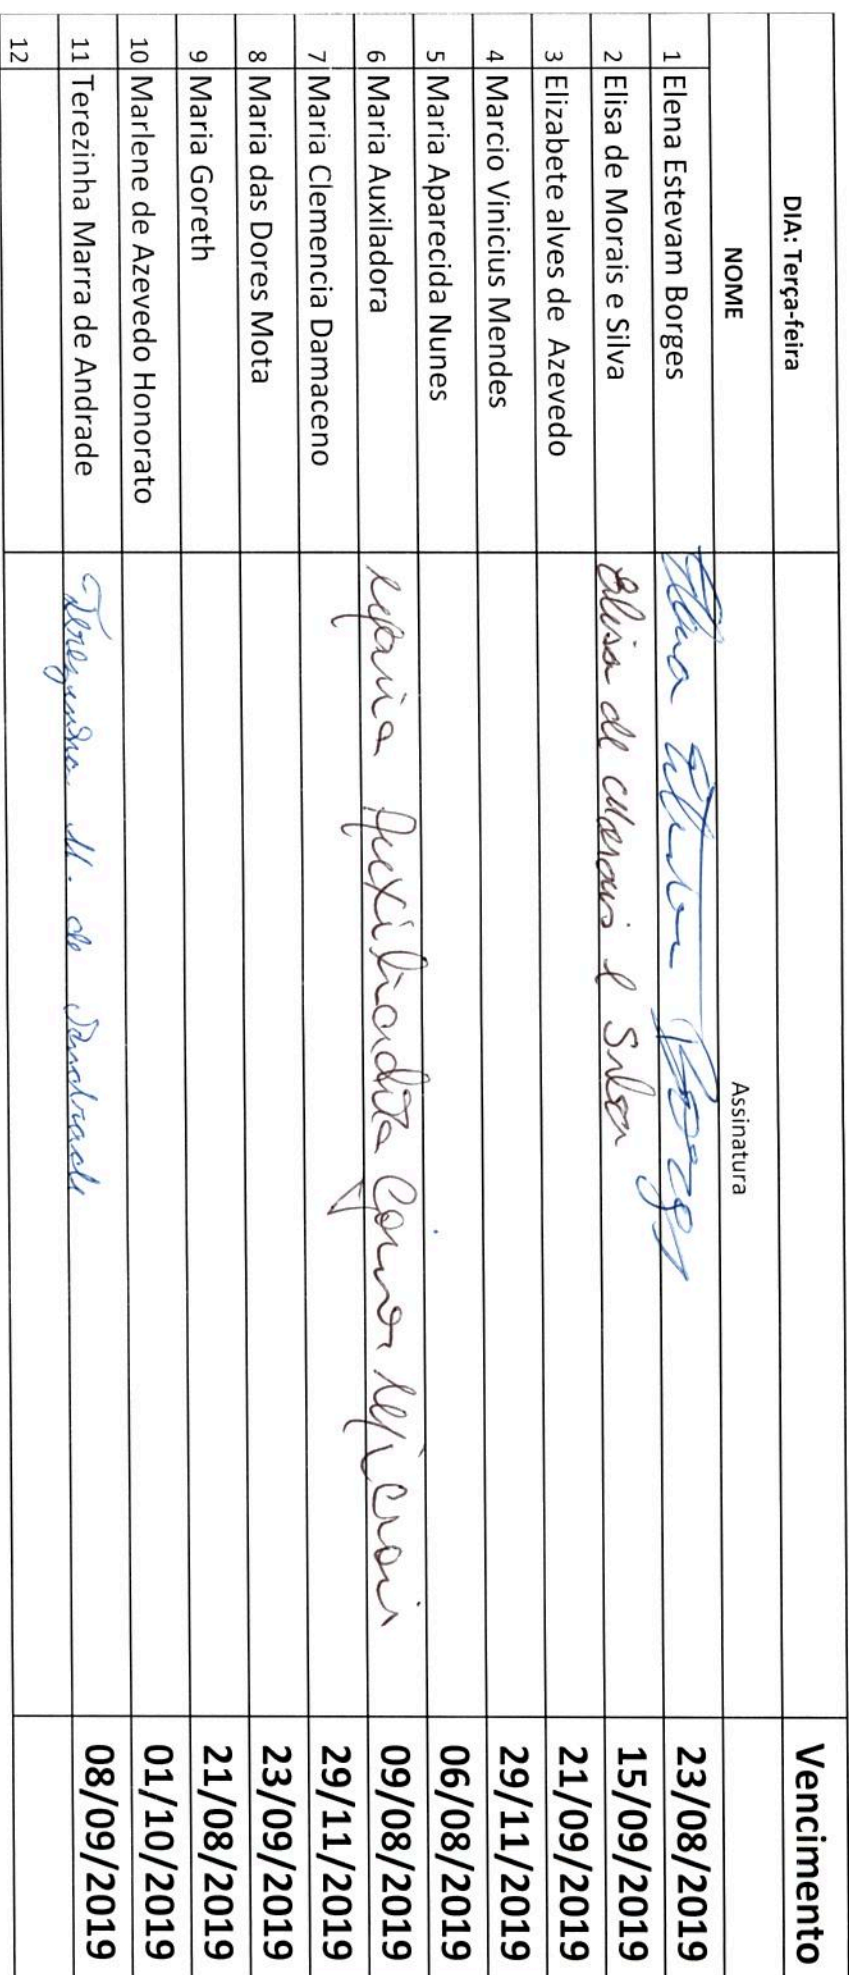 DIA: Terça-feira Vencimento
NOME Assinatura
1 Elena Estevam Borges Elena Estevam Borges 23/08/2019
2 Elisa de Morais e Silva Elisa de Morais e Silva 15/09/2019
3 Elizabete alves de Azevedo 21/09/2019
4 Marcio Vinicius Mendes 29/11/2019
5 Maria Aparecida Nunes 06/08/2019
6 Maria Auxiladora Maria Auxiliadora 09/08/2019
7 Maria Clemencia Damaceno 29/11/2019
8 Maria das Dores Mota 23/09/2019
9 Maria Goreth 21/08/2019
10 Marlene de Azevedo Honorato 01/10/2019
11 Terezinha Marra de Andrade Terezinha M. de Andrade 08/09/2019
12